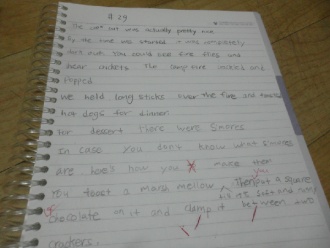 # 29
The cook out was actually pretty nice
By the time we started it was completely
dark out. You could see fire flies and
hear crickets. The camp fire crackled and
popped
We held long sticks over the fire and roasted
hot dogs for dinner.
For dessert there were smores
In case you don't know what smores
are here's how you make them
You toast a marsh mellow then put a square
chocolate on it and clamp it between two
crackers.